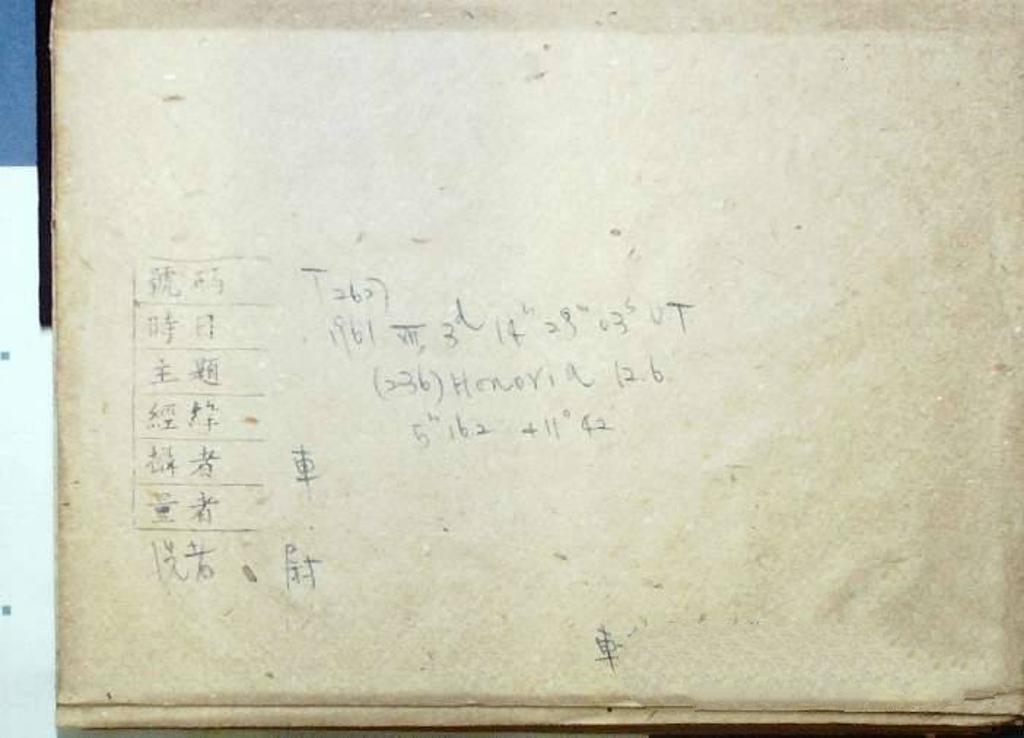 號码 T2627
時日 1961 Ⅶ, 3ᵈ 14ʰ 29ᵐ 03ˢ UT
主題 (236) Honoria 12.6
經緯 5ʰ 16.2 +11° 42
攝者 車
量者
洗者 尉
車